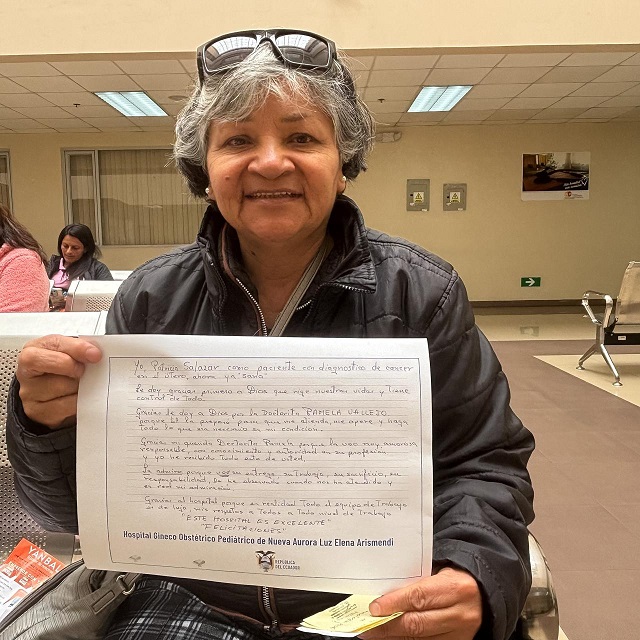 Yo, Salazar como paciente con diagnóstico de cáncer
en el útero, ahora ya "sana"
Le doy gracias primero a Dios que rige nuestras vidas y tiene
control de todo.
Gracias le doy a Dios por la Doctorita PAMELA VALLEJO
porque El la preparo para que me atienda, me opere y haga
todo lo que era necesario en mi condición.
Gracias mi querida Doctorita Pamela porque la veo muy amorosa
responsable, con conocimiento y autoridad en su profesión
y yo he recibido todo eso de usted.
La admiro porque veo su entrega, su trabajo, su sacrificio, su
responsabilidad, la he observado cuando nos ha atendido y
es real mi admiración
Gracias al hospital porque en realidad todo el equipo de trabajo
es de lujo, mis respetos a todos a todo nivel de trabajo
"ESTE HOSPITAL ES EXCELENTE"
FELICITACIONES
Hospital Gineco Obstétrico Pediátrico de Nueva Aurora Luz Elena Arismendi
REPÚBLICA
DEL ECUADOR
YANBAL